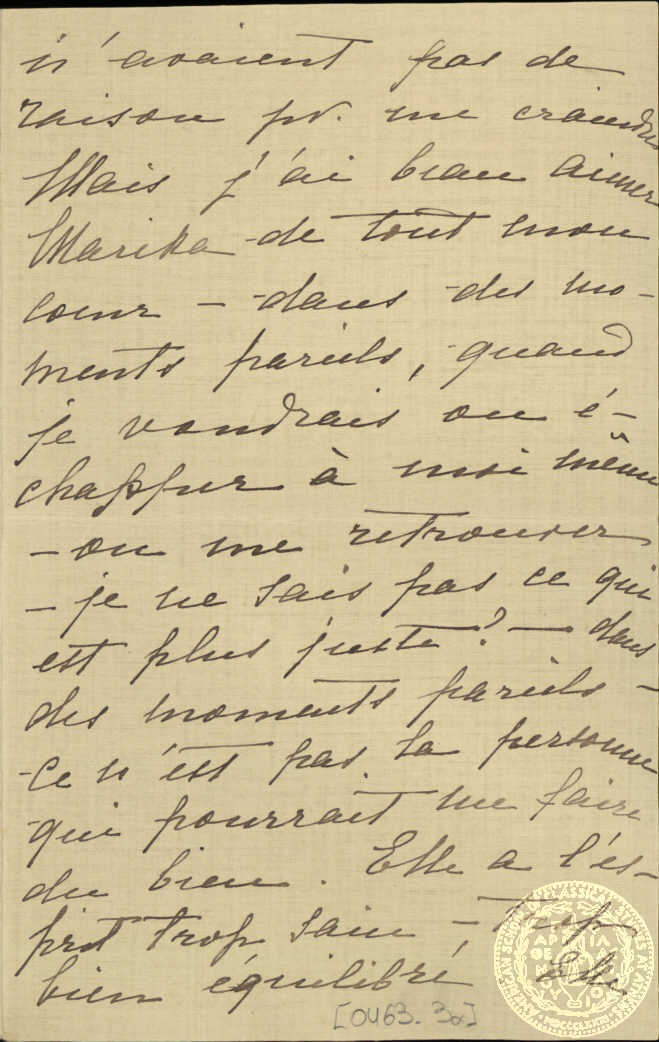 n'avaient pas de
raison pr. me craindre
Mais j'ai beau aimer
Marika - de tout mon
coeur - dans des mo-
ments pareils, quand
je voudrais ou é-
chapper à moi même
- ou me retrouver
- je ne sais pas ce qui
est plus juste? - dans
des moments pareils -
ce n'est pas la personne
qui pourrait me faire
du bien. Elle a l'es-
prit trop sain - trop
bien équilibré Elle
[OU63. 3α]